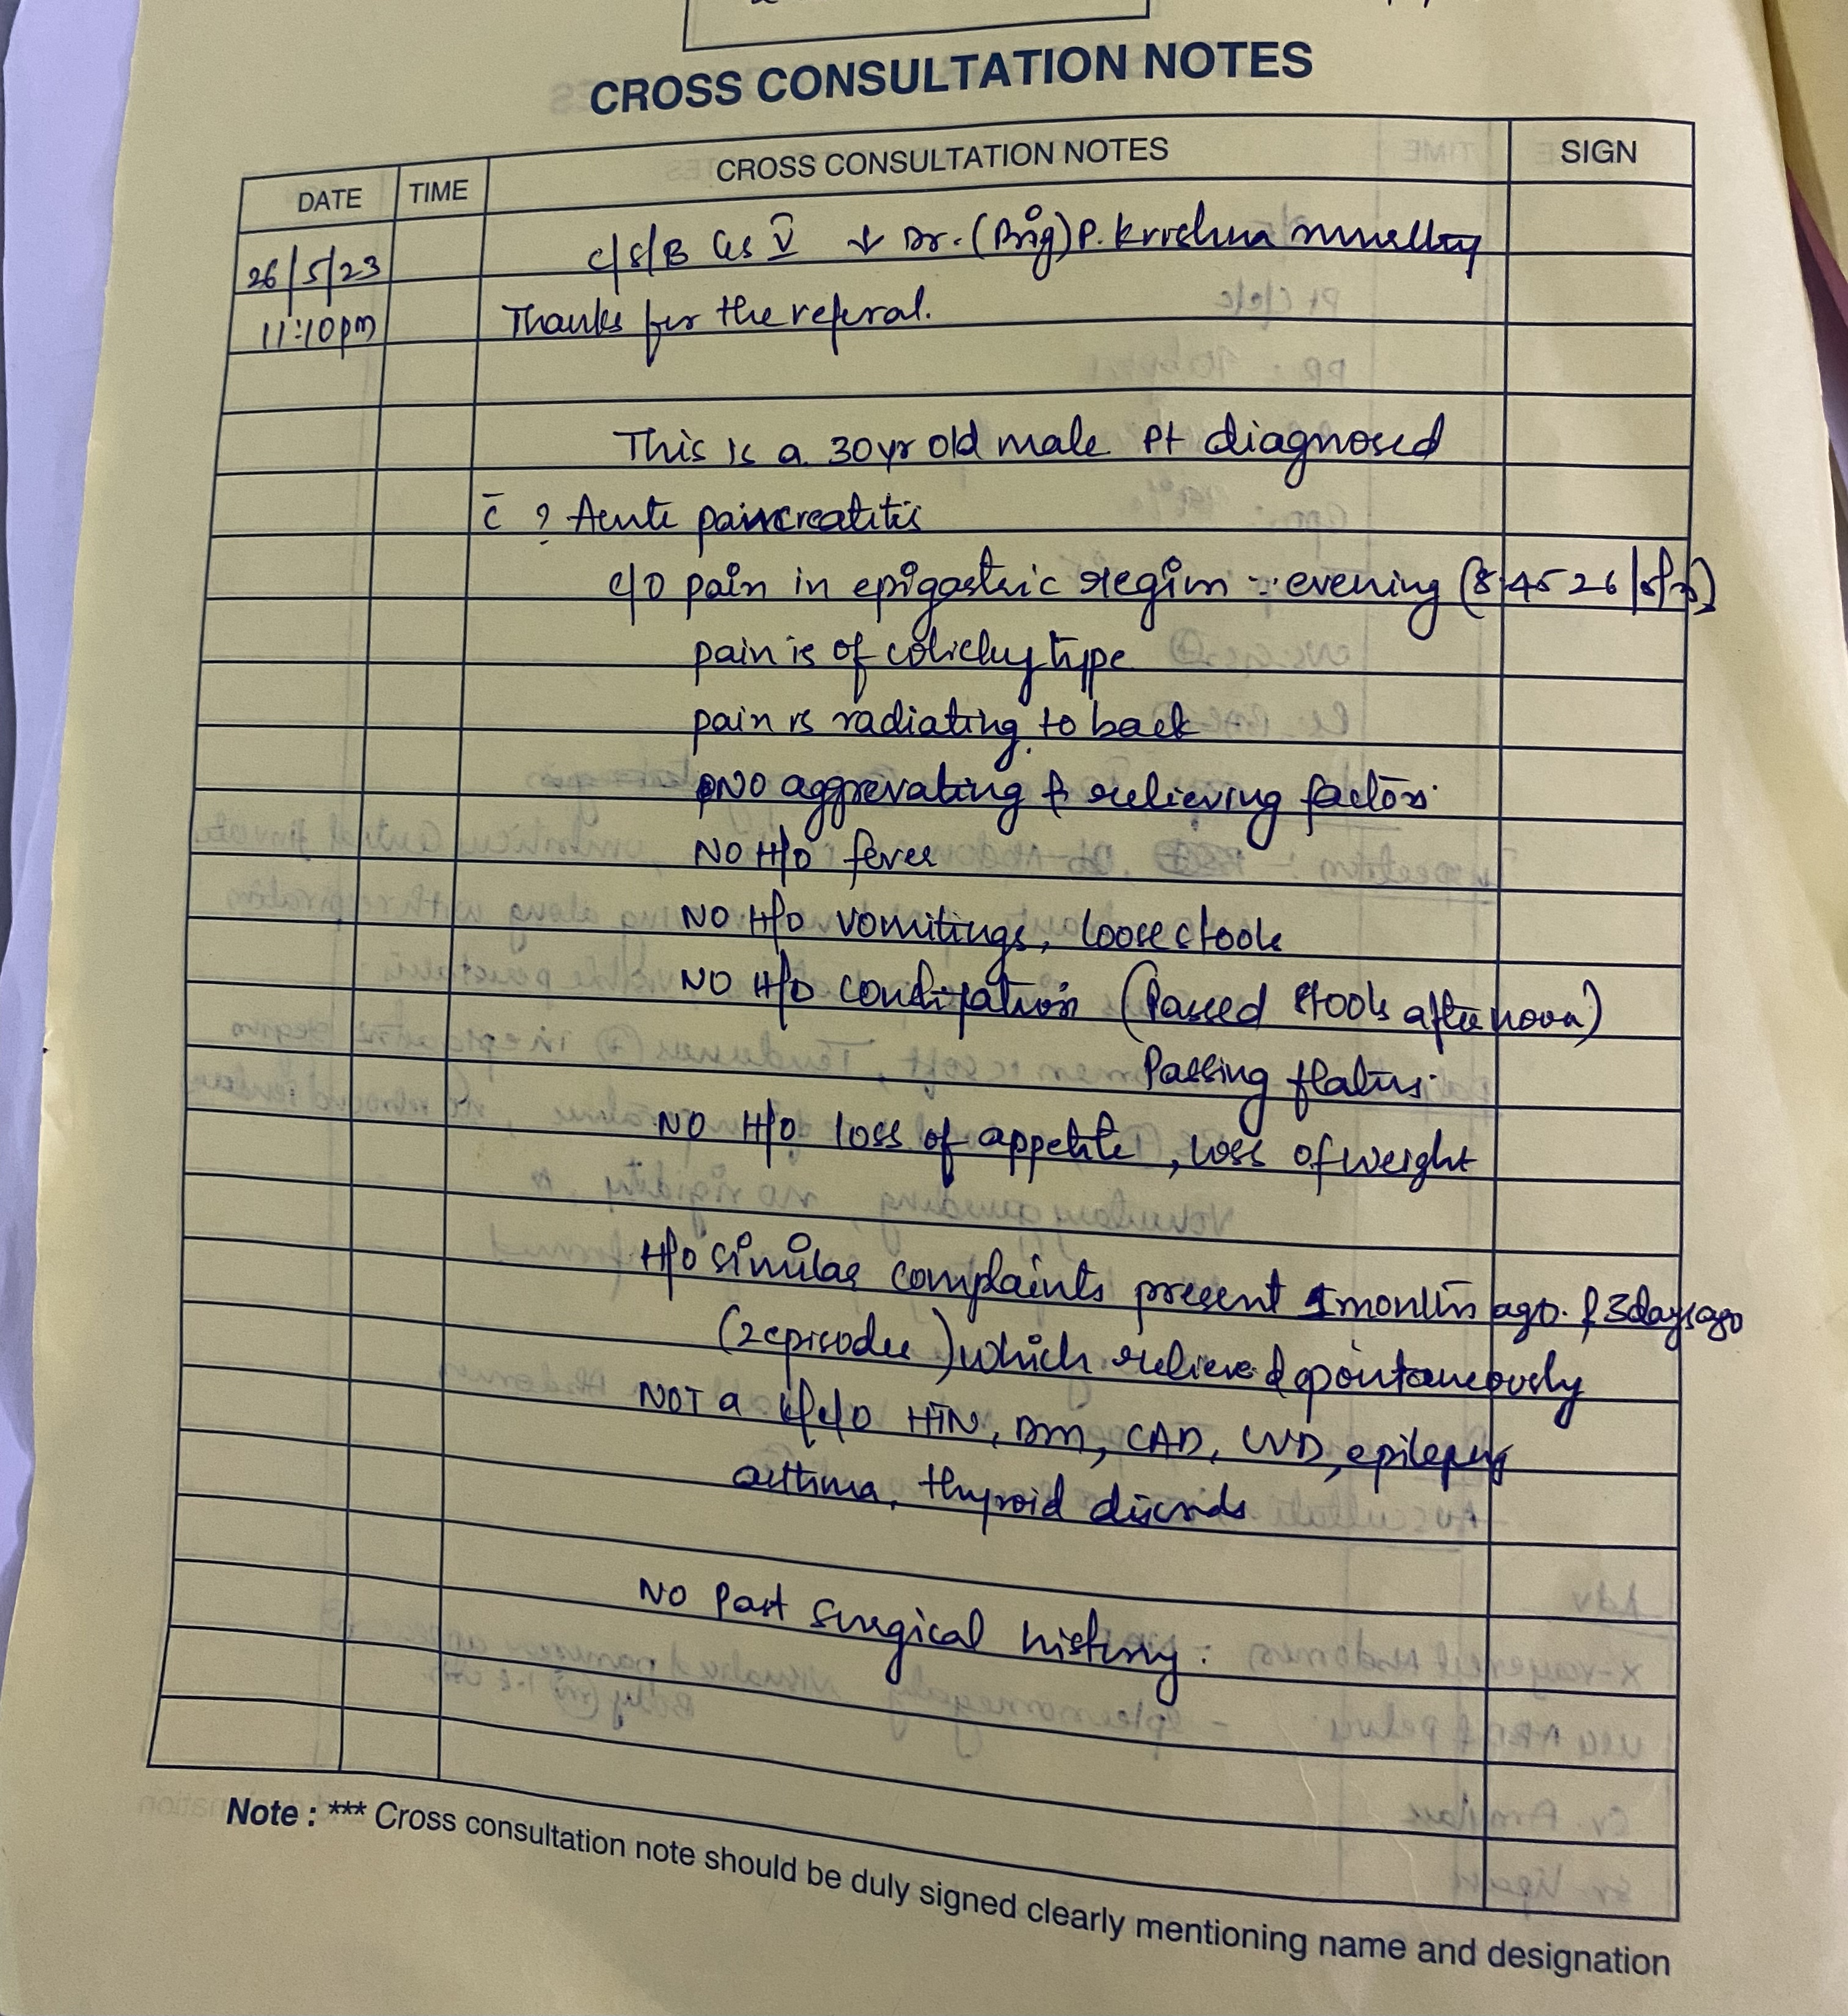 CROSS CONSULTATION NOTES
DATE TIME CROSS CONSULTATION NOTES SIGN
26/5/23 c/s/B Gs V ↓ Dr. (Brig) P. Krishna
11:10pm Thanks for the referal.
This is a 30yr old male Pt diagnosed
c̄ ? Acute pancreatitis
c/o pain in epigastric region ∵ evening (8:45 26/5/23)
pain is of colicky type
pain is radiating to back
NO aggrevating & relieving factors.
NO H/o fever
NO H/o vomitings, loose stools
NO H/o constipation (Passed stools afternoon)
Passing flatus.
NO H/o loss of appetite, loss of weight
H/o similar complaints present 1 month ago. & 3 days ago
(2 episodes) which relieved spontaneously
NOT a k/c/o HTN, DM, CAD, CVD, epilepsy
asthma, thyroid disords
NO Past surgical history.
Note : *** Cross consultation note should be duly signed clearly mentioning name and designation